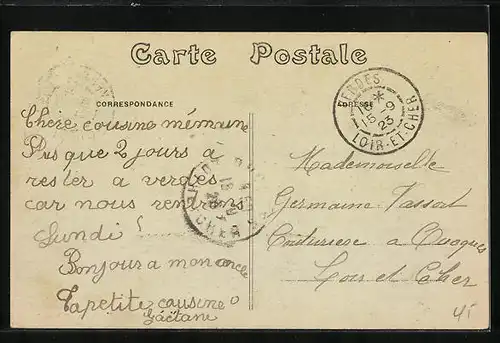 Carte Postale
CORRESPONDANCE
ADRESSE
ERDES
*
16
15 -9
23
LOIR-ET-CHER
Chère cousine mémaine
Pus que 2 jours a
rester a verdes
car nous rendrons
Lundi !
Bonjour a mon oncle
Ta petite cousine
Gaétane
Mademoiselle
Germaine Vassort
Couturière a Ouques
Loir et Cher
CHER